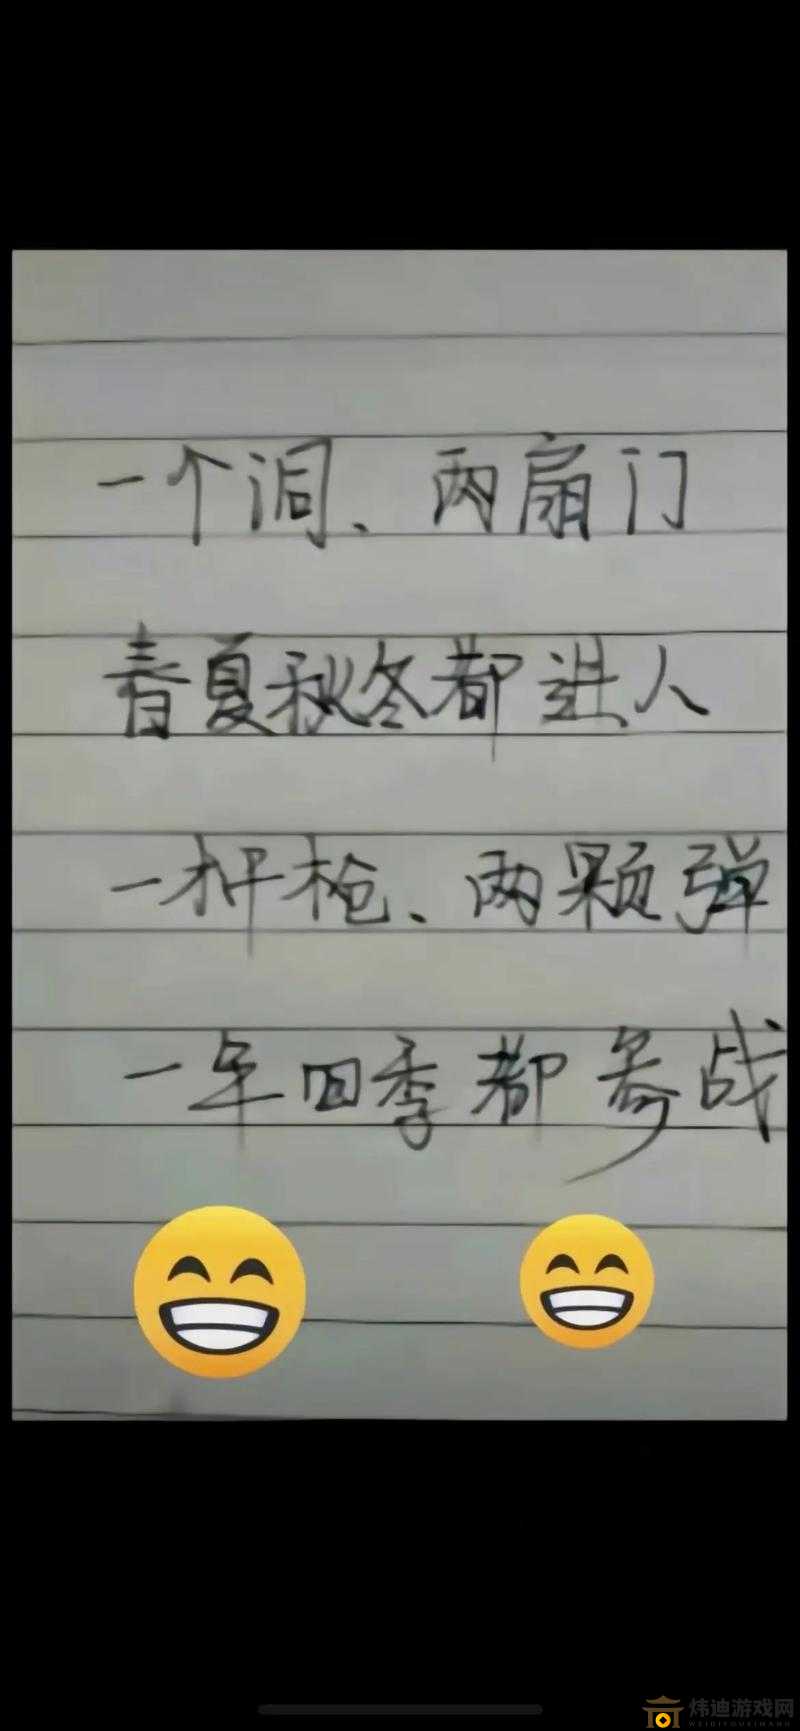 一个洞、两扇门
春夏秋冬都进人
一杆枪、两颗弹
一年四季都参战
炜迪游戏网
WEIDIYOUXIWANG